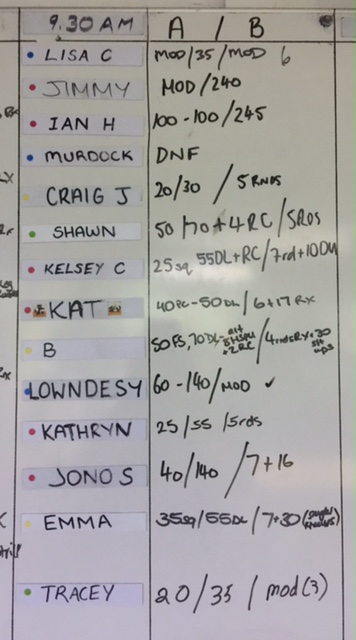 9.30 AM A / B
LISA C MOD/35/MOD 6
JIMMY MOD/240
IAN H 100-100/245
MURDOCK DNF
CRAIG J 20/30 / 5 RNDS
SHAWN 50/70+4RC/5RDS
KELSEY C 25sq 55DL+RC/7rd+10DU
KAT 40PC-50DL/6+17 RX
B 50FS, 70DL- alt 5HSPU +2RC /4rndsRX+30 sit ups
LOWNDESY 60-140/MOD ✓
KATHRYN 25/55/5rds
JONO S 40/140/7+16
EMMA 35sq/55DL/7+30
TRACEY 20/35/mod(3)